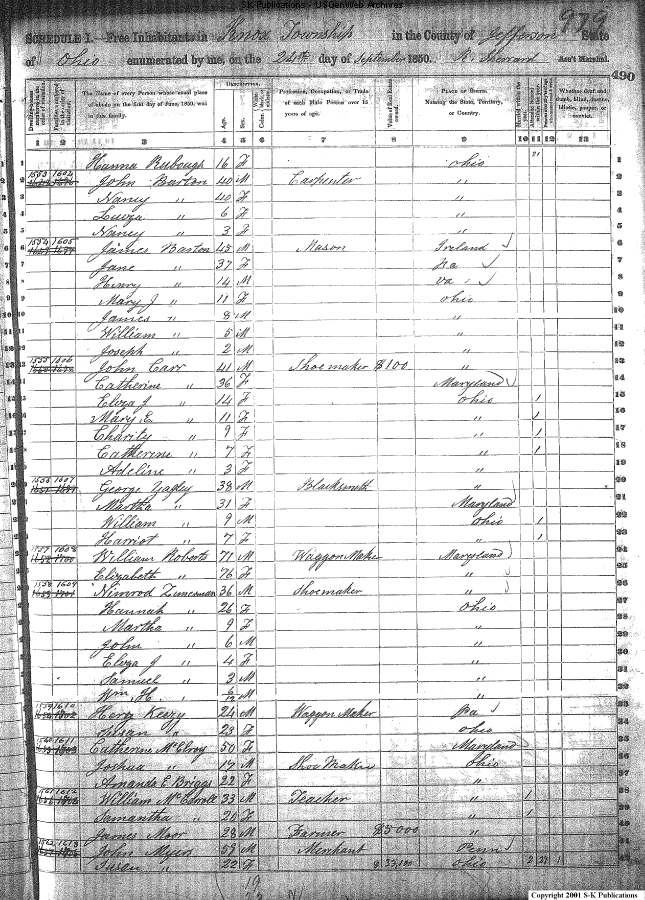 S-K Publications - USGenWeb Archives
979
SCHEDULE I.—Free Inhabitants in Knox Township in the County of Jefferson State
of Ohio enumerated by me, on the 24th day of September 1850. Ass't Marshal.
490
The Name of every Person whose usual place of abode on the first day of June, 1850, was in this family.
DESCRIPTION.
Age.
Sex.
Profession, Occupation, or Trade of each Male Person over 15 years of age.
Value of Real Estate owned.
PLACE OF BIRTH. Naming the State, Territory, or Country.
Whether deaf and dumb, blind, insane, idiotic, pauper, or convict.
1 2 3 4 5 6 7 8 9 10 11 12 13
1 Hanna 16 F ohio
2 1553 1602 John Barton 40 M Carpenter "
3 Nancy " 40 F "
4 " 6 F "
5 Nancy " 3 F "
6 1554 1605 James Barton 45 M Mason Ireland
7 Jane " 37 F Pa
8 Henry " 14 M Va
9 Mary J " 11 F ohio
10 James " 8 M "
11 William " 5 M "
12 Joseph " 2 M "
13 1555 1606 John Carr 41 M Shoemaker $100 "
14 Catherine " 36 F Maryland
15 Eliza J " 14 F ohio 1
16 Mary E " 11 F " 1
17 Charity " 9 F " 1
18 Catherine " 7 F " 1
19 Adeline " 3 F "
20 1556 1607 George Yagley 38 M Blacksmith "
21 Martha " 31 F Maryland
22 William " 9 M Ohio 1
23 Harriot " 7 F " 1
24 1557 1608 William Roberts 71 M Waggon Maker Maryland
25 Elizabeth " 76 F "
26 1558 1609 Nimrod 36 M Shoemaker "
27 Hannah " 26 F Ohio
28 Martha " 9 F "
29 John " 6 M "
30 Eliza J " 4 F "
31 Samuel " 3 M "
32 Wm H. " 6/12 M "
33 1559 1610 24 M Waggon Maker Pa
34 Susan " 23 F ohio
35 1560 1611 Catherine McElroy 50 F Maryland
36 Joshua " 17 M Shoe Maker Ohio
37 Amanda E Briggs 22 F "
38 1561 1612 William 33 M Teacher " 1
39 Samantha " 20 F " 1
40 James Moor 28 M Farmer $5000 "
41 1562 1613 John Myers 59 M Merchant Penn
Susan " 22 F ohio
19
Copyright 2001 S-K Publications